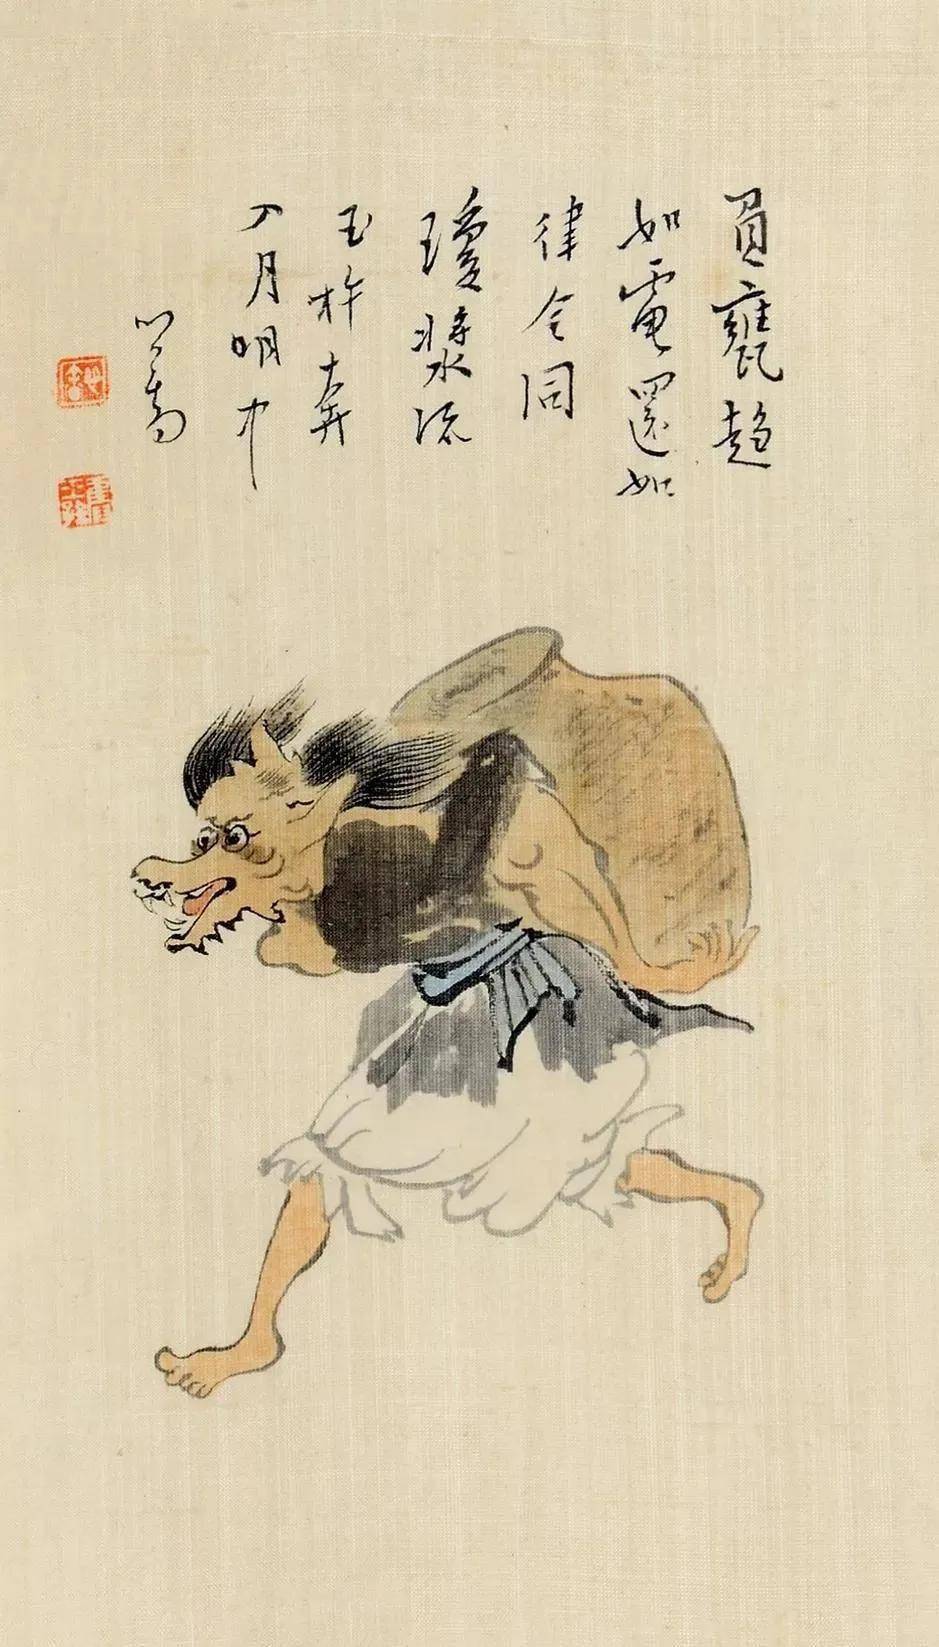 負甕趨
如電還如
律令同
瓊漿流
玉杵奔
入月明中
心畬
舊王孫